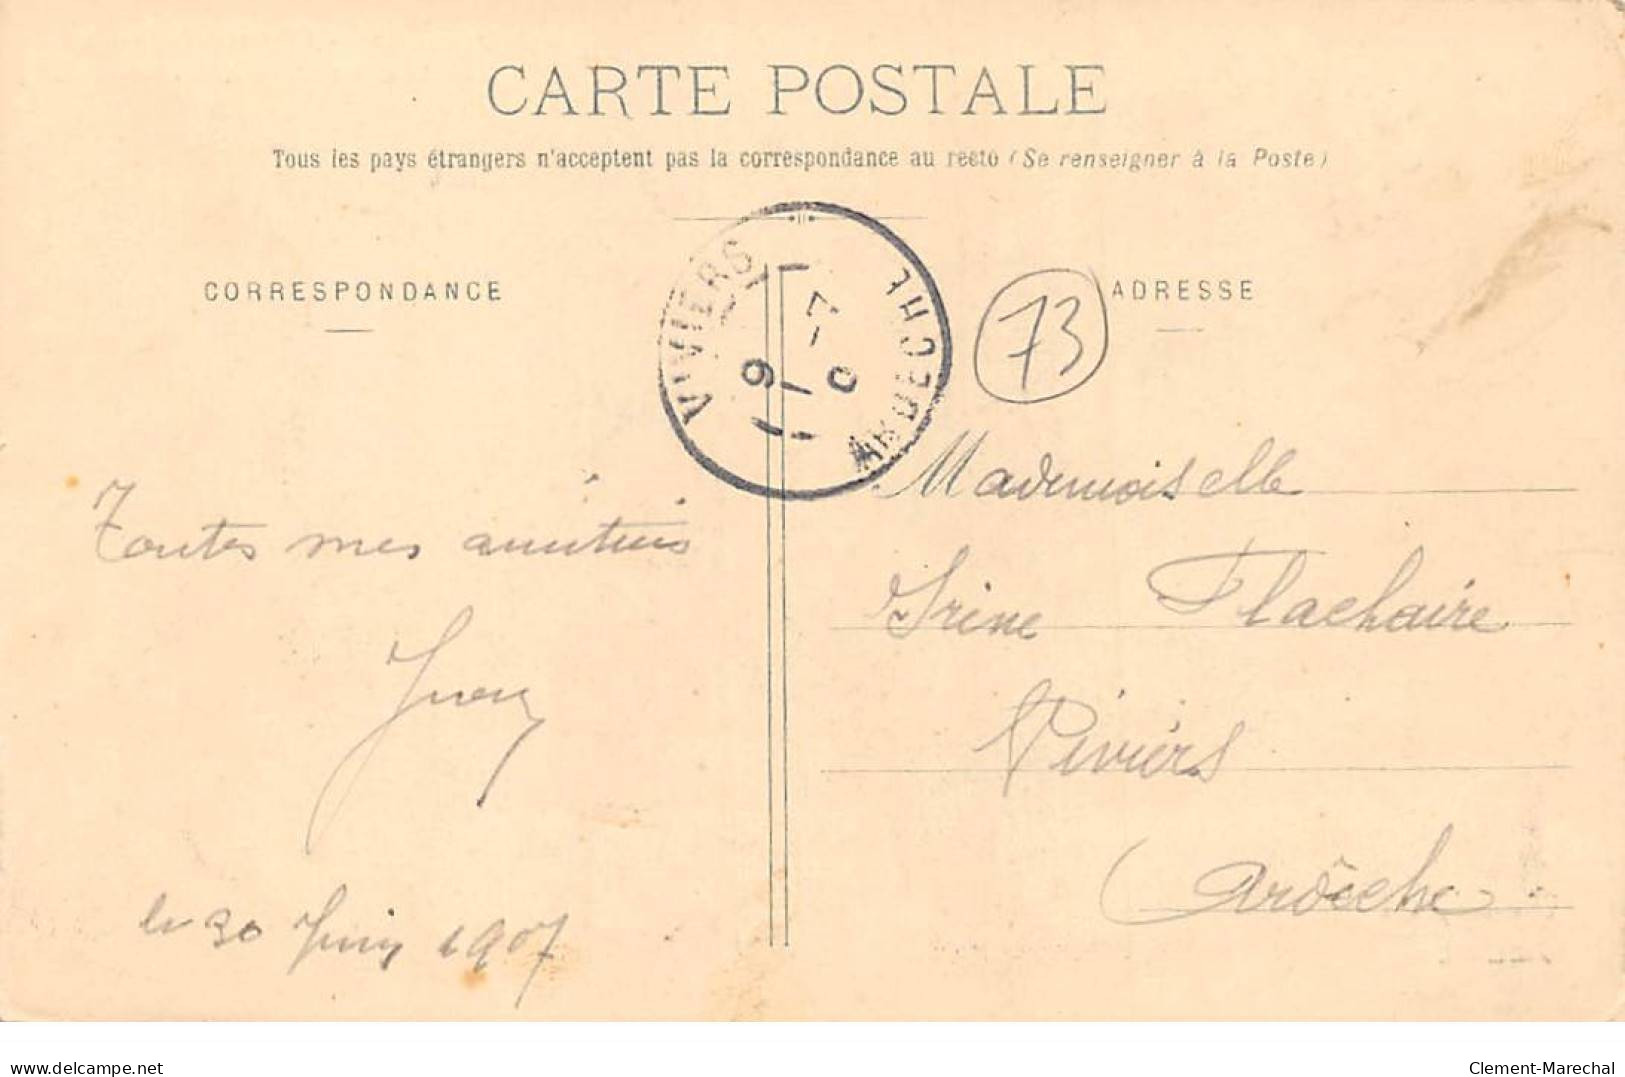 CARTE POSTALE
Tous les pays étrangers n'acceptent pas la correspondance au recto (Se renseigner à la Poste)
CORRESPONDANCE
ADRESSE
VIVIERS
ARDECHE
73
Toutes mes amitiés
le 30 Juin 1907
Mademoiselle
Irène Flachaire
Viviers
Ardèche
www.delcampe.net
Clement-Marechal